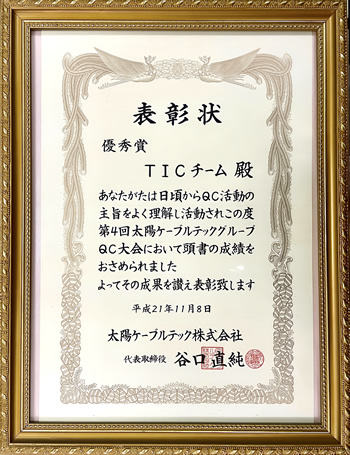 表彰状
優秀賞
TICチーム 殿
あなたがたは日頃からQC活動の
主旨をよく理解し活動されこの度
第4回太陽ケーブルテックグループ
QC大会において頭書の成績を
おさめられました
よってその成果を讃え表彰致します
平成21年11月8日
太陽ケーブルテック株式会社
代表取締役 谷口直純